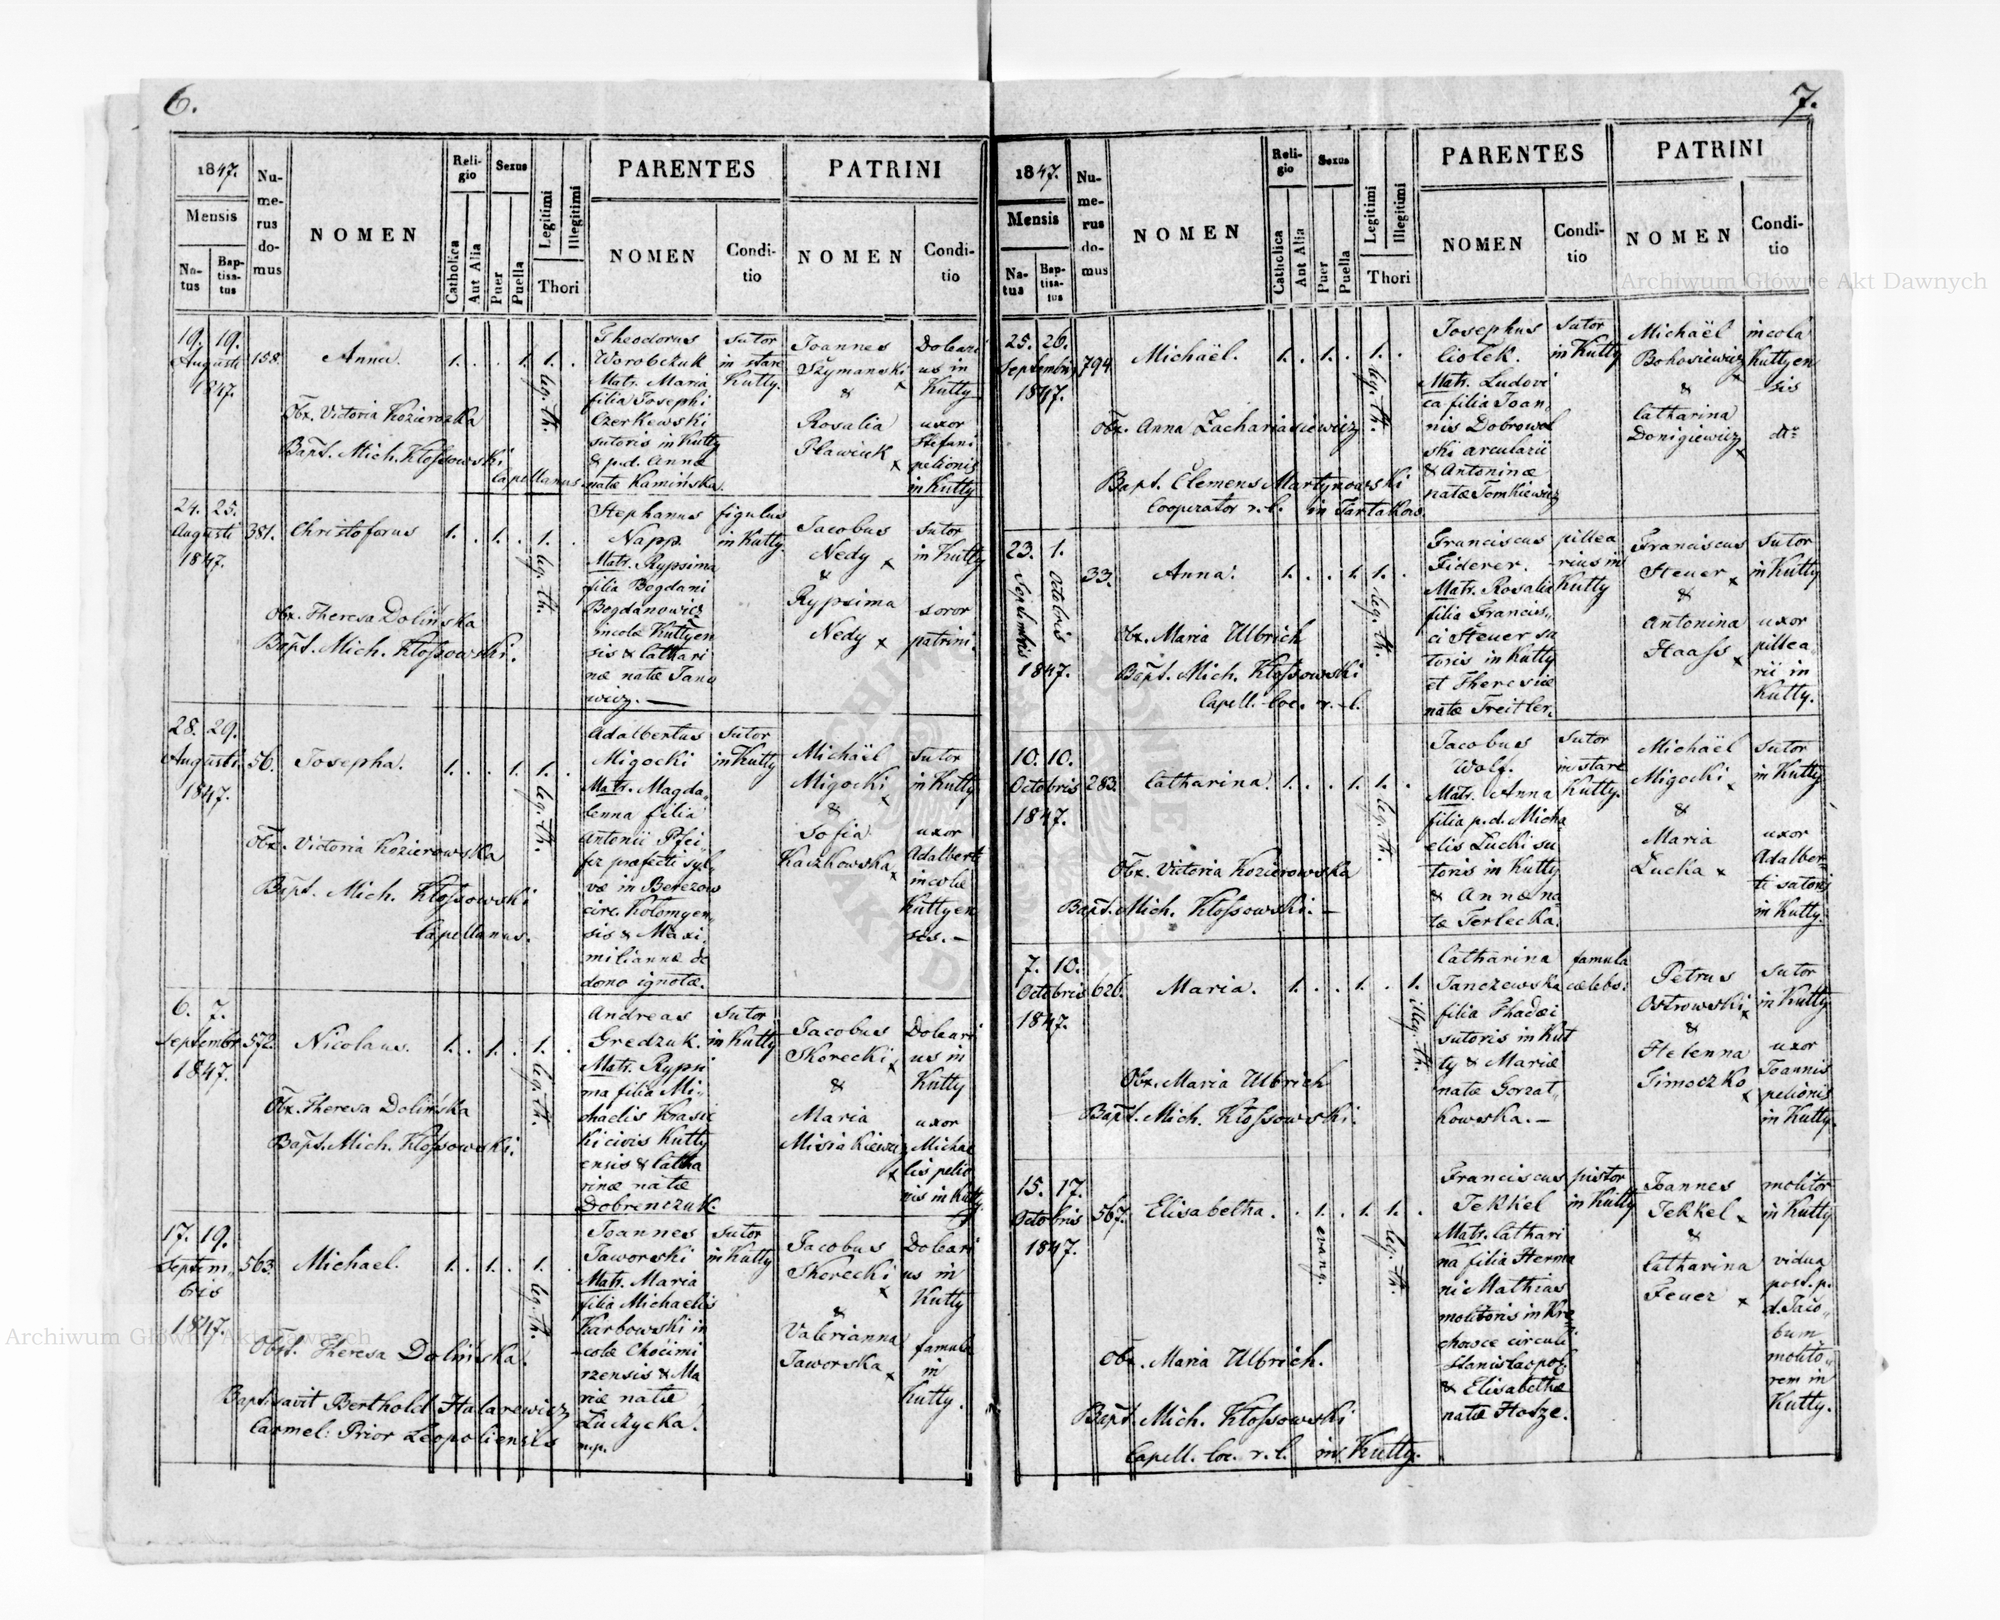 6.
1847.
Mensis
Natus
Baptisatus
Numerus domus
NOMEN
Religio
Catholica
Aut Alia
Sexus
Puer
Puella
Legitimi
Illegitimi
Thori
PARENTES
NOMEN
Conditio
PATRINI
NOMEN
Conditio
19. 19.
Augusti
1847.
158.
Anna.
1. . . 1. 1. .
leg. th.
Obx. Victoria Kozierowska
Bapt. Mich. Kłossowski
Capellanus
Theodorus
Worobczuk
Matr. Maria
filia Josephi
Czerkewski
sutoris in Kutty
& p.d. Annæ
natæ Kamińska.
Sutor
in stare
Kutty.
Joannes
Szymanski x
&
Rosalia
Pławiuk x
Doleari
us in
Kutty
uxor
Stefani
pelionis
in Kutty
24. 25.
Augusti
1847.
381.
Christoforus
1. . 1. . 1. .
leg. th.
Obx. Theresa Dolińska
Bapt. Mich. Kłossowski.
Stephanus
Napp.
Matr. Rypsima
filia Bogdani
Bogdanowicz
incolæ Kuttyen
sis & Cathari
næ natæ Janu
wicz. —
figulus
in Kutty.
Jacobus
Nedy x
&
Rypsima
Nedy x
Sutor
in Kutty
soror
patrini.
28. 29.
Augusti
1847.
56.
Josepha.
1. . . 1. 1. .
leg. th.
Obx. Victoria Kozierowska
Bapt. Mich. Kłossowski
Capellanus.
Adalbertus
Migocki
Matr. Magda„
lenna filia
Antonii Pfei„
fer præfecti syl„
væ in Berezow
circ. Kołomyen„
sis & Maxi„
miliannæ de
domo ignotæ.
Sutor
in Kutty
Michaël
Migocki x
&
Sofia
Kaczkowska x
Sutor
in Kutty
uxor
Adalberti
incolæ
Kuttyen
sis. —
6. 7.
Septembr
1847.
572.
Nicolaus.
1. . 1. . 1. .
leg. th.
Obx. Theresa Dolińska
Bapt. Mich. Kłossowski.
Andreas
Gredzuk.
Matr. Rypsi
ma filia Mi„
chaelis Krasic
ki civis Kutty
ensis & Catha
rinæ natæ
Dobrenczuk.
Sutor
in Kutty
Jacobus
Skorecki x
&
Maria
Misiakiewicz x
Doleari
us in
Kutty
uxor
Michae
lis pelio
nis in Kutty
17. 19.
Septem„
bris
1847.
563.
Michael.
1. . 1. . 1. .
leg. th.
Obst. Theresa Dolińska.
Baptisavit Berthold Halarewicz
Carmel: Prior Leopoliensis
Joannes
Jaworski
Matr. Maria
filia Michaelis
Karbowski in
colæ Chocimi
rzensis & Ma
riæ natæ
Łuczycka.
mp.
Sutor
in Kutty
Jacobus
Skorecki x
&
Valerianna
Jaworska x
Doleari
us in
Kutty
famula
in
Kutty.
7.
1847.
Mensis
Natus
Baptisatus
Numerus domus
NOMEN
Religio
Catholica
Aut Alia
Sexus
Puer
Puella
Legitimi
Illegitimi
Thori
PARENTES
NOMEN
Conditio
PATRINI
NOMEN
Conditio
25. 26.
Septembris
1847.
794.
Michaël.
1. . 1. . 1. .
leg. th.
Obx. Anna Zachariasiewicz
Bapt. Clemens Martynowski
Cooperator r. l. in Tartakow.
Josephus
Ciołek.
Matr. Ludovi
ca filia Joan„
nis Dobrowol
ski arcularii
& Antoninæ
natæ Tomkiewicz
Sutor
in Kutty
Michaël
Bohosiewicz x
&
Catharina
Donigiewicz x
incola
Kuttyen
sis
dtº
23. 1.
Septembris
Octobris
1847.
33.
Anna.
1. . . 1. 1. .
leg. th.
Obx. Maria Ulbrich
Bapt. Mich. Kłossowski
Capell. loc. r. l.
Franciscus
Fiderer.
Matr. Rosalia
filia Francis„
ci Steuer su
toris in Kutty
et Theresiæ
natæ Treitler.
pillea
rius in
Kutty
Franciscus
Steuer x
&
Antonina
Haass x
Sutor
in Kutty
uxor
pillea„
rii in
Kutty.
10. 10.
Octobris
1847.
283.
Catharina.
1. . . 1. 1. .
leg. th.
Obx. Victoria Kozierowska
Bapt. Mich. Kłossowski. —
Jacobus
Wolf.
Matr. Anna
filia p.d. Micha
elis Łucki su
toris in Kutty
& Annæ na„
tæ Terlecka.
Sutor
in stare
Kutty.
Michaël
Migocki x
&
Maria
Łucka x
Sutor
in Kutty
uxor
Adalber„
ti sutoris
in Kutty.
7. 10.
Octobris
1847.
626.
Maria.
1. . . 1. . 1.
illeg. th.
Obx. Maria Ulbrich
Bapt. Mich. Kłossowski.
Catharina
Janczewska
filia Thadæi
sutoris in Kut
ty & Mariæ
natæ Gorzat„
kowska. —
famula
cælebs.
Petrus
Ostrowski x
&
Helenna
Timoczko x
Sutor
in Kutty
uxor
Joannis
pelionis
in Kutty.
15. 17.
Octobris
1847.
567.
Elisabetha.
. 1. . 1. 1. .
evang.
leg. th.
Obx. Maria Ulbrich.
Bapt. Mich. Kłossowski
Capell. loc. r. l. in Kutty.
Franciscus
Jekkel
Matr. Cathari
na filia Herma
ni Mathias
molitoris in Kre
chowce circuli
Stanislaopol.
& Elisabethæ
natæ Hosze.
pistor
in Kutty
Joannes
Jekkel x
&
Catharina
Feuer x
molitor
in Kutty
vidua
post. p.
d. Jaco„
bum„
molito„
rem in
Kutty.
Archiwum Główne Akt Dawnych
Archiwum Główne Akt Dawnych